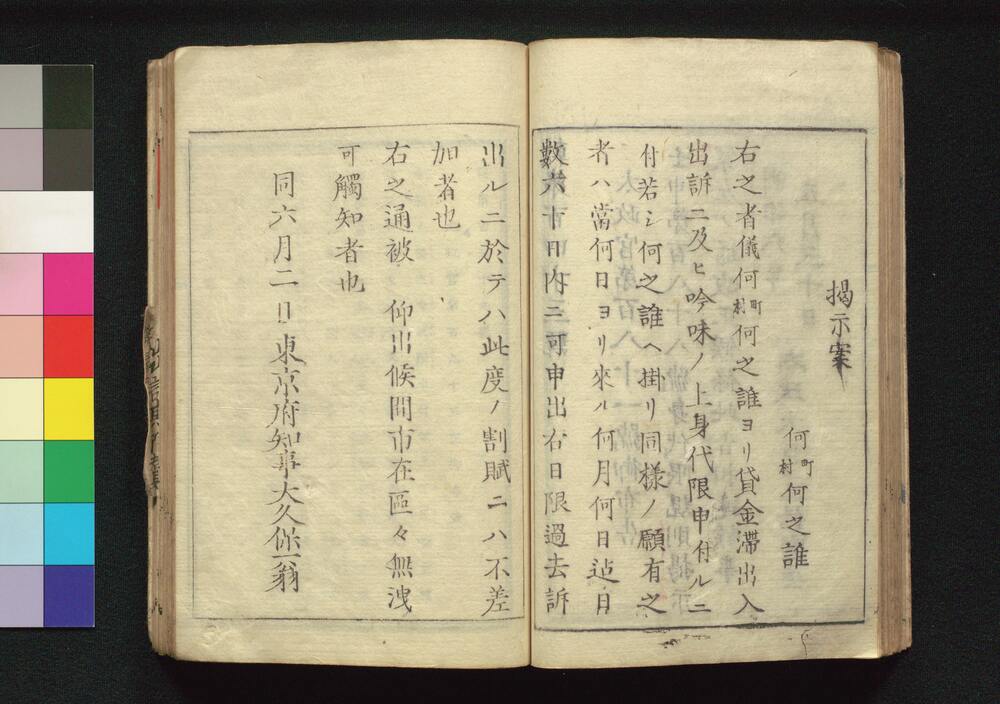 揭示案
何町村何之誰
右之者儀何町村何之誰ヨリ貸金滯出入
出訴ニ及ヒ吟味ノ上身代限申付ルニ
付若シ何之誰ヘ掛リ同樣ノ願有之
者ハ當何日ヨリ來ル何月何日迠日
數六十日内ニ可申出右日限過去訴
出ルニ於テハ此度ノ割賦ニハ不差
加者也
右之通被 仰出候間市在區々無洩
可觸知者也
同六月二日東京府知事大久保一翁